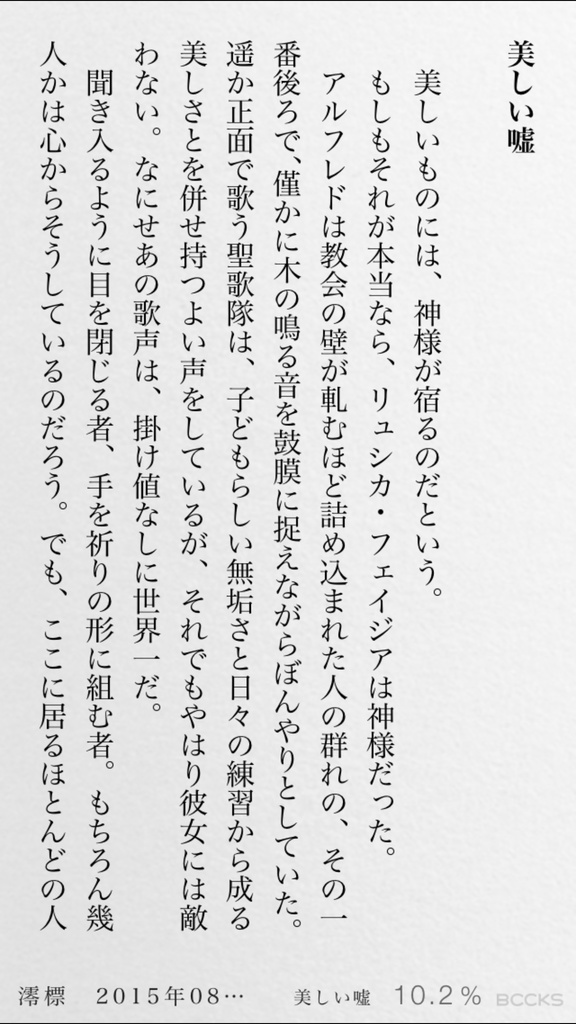 美しい嘘
美しいものには、神様が宿るのだという。
もしもそれが本当なら、リュシカ・フェイジアは神様だった。
アルフレドは教会の壁が軋むほど詰め込まれた人の群れの、その一
番後ろで、僅かに木の鳴る音を鼓膜に捉えながらぼんやりとしていた。
遥か正面で歌う聖歌隊は、子どもらしい無垢さと日々の練習から成る
美しさとを併せ持つよい声をしているが、それでもやはり彼女には敵
わない。なにせあの歌声は、掛け値なしに世界一だ。
聞き入るように目を閉じる者、手を祈りの形に組む者。もちろん幾
人かは心からそうしているのだろう。でも、ここに居るほとんどの人
澪標 2015年08… 美しい嘘 10.2% BCCKS